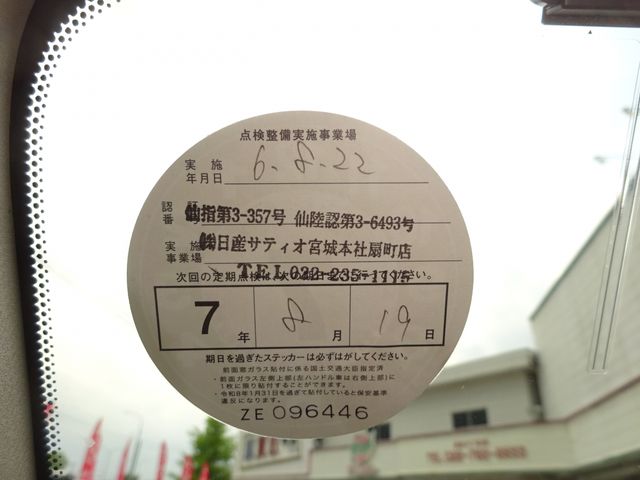 点検整備実施事業場
実施年月日 6.8.22
認証番号 仙指第3-357号 仙陸認第3-6493号
実施事業場 ㈱日産サティオ宮城本社扇町店
TEL022-235-1115
次回の定期点検は、次の期日
ください。
7年 8月 19日
期日を過ぎたステッカーは必ずはがしてください。
前面窓ガラス貼付に係る国土交通大臣指定済
・前面ガラス左側上部(左ハンドル車は右側上部)に
1枚に限り貼付することができます。
・令和8年1月31日を過ぎて貼付していると保安基準
違反になります。
ZE 096446